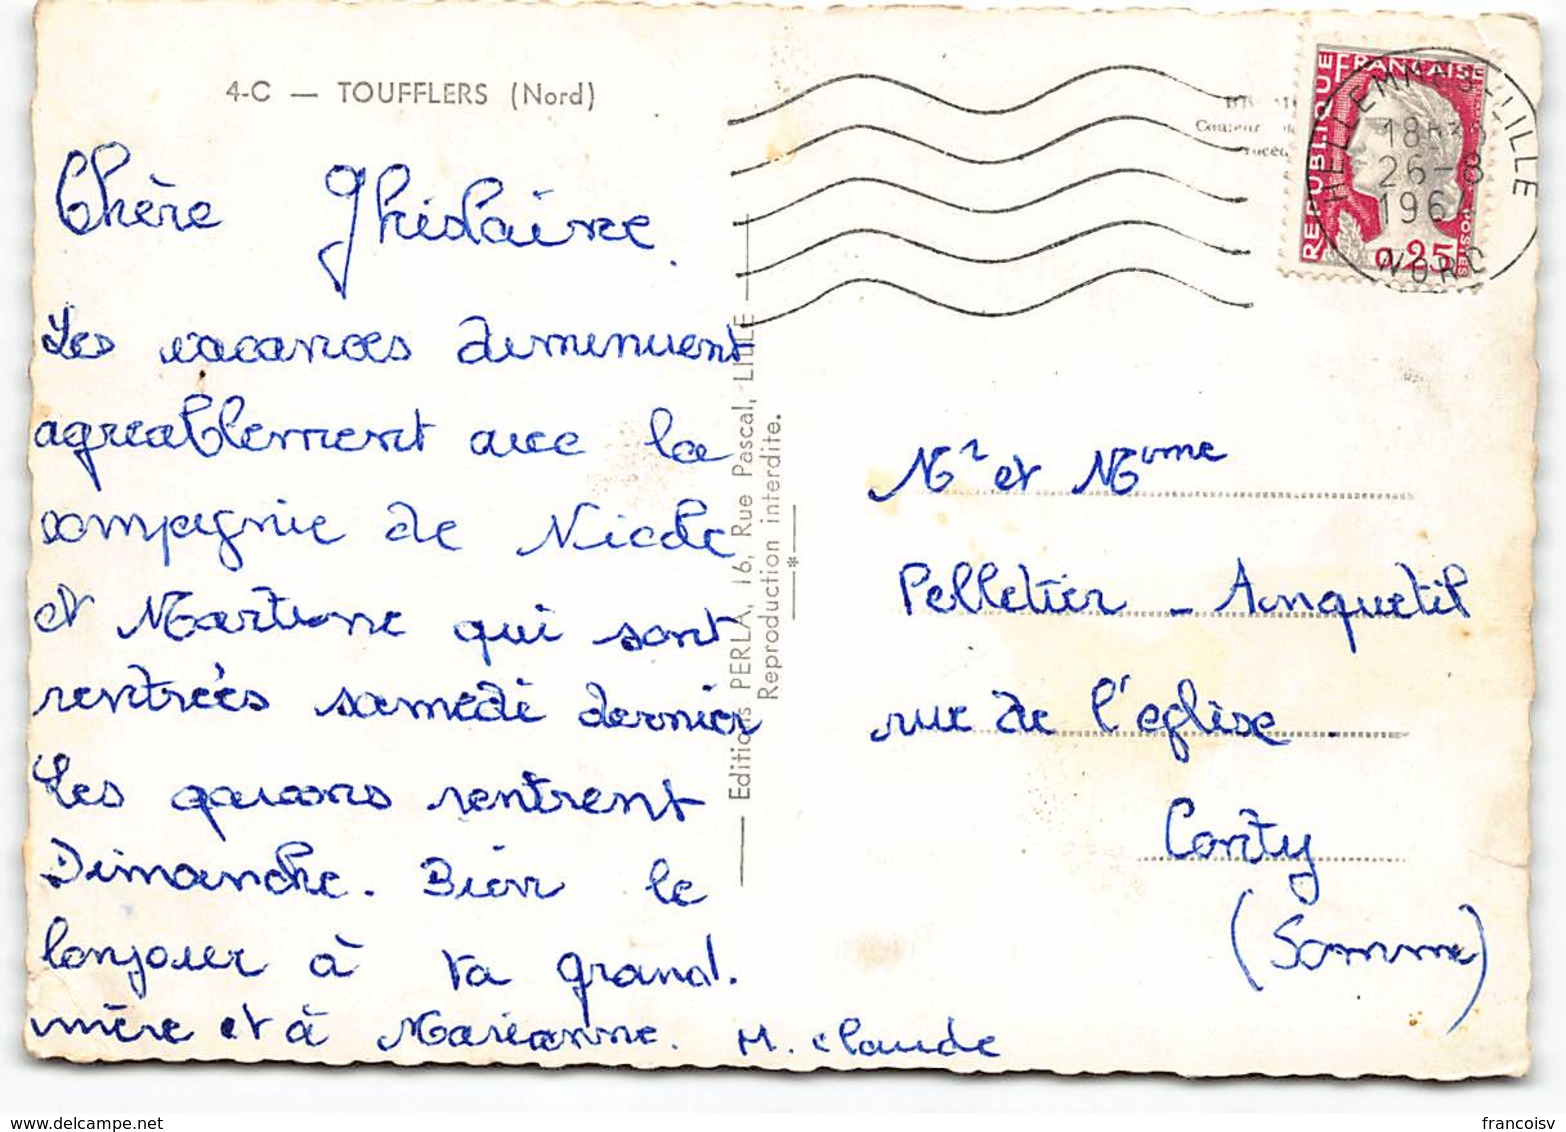 4-C — TOUFFLERS (Nord)
Chère Ghislaine.
Les vacances diminuent
agréablement avec la
compagnie de Nicole
et Martine qui sont
rentrées samedi dernier
Les garçons rentrent
Dimanche. Bien le
bonjour à ta grand.
mère et à Marianne. M. Claude
Editions PERLA, 16, Rue Pascal, LILLE
Reproduction interdite.
REPUBLIQUE FRANÇAISE
0,25
HELLEMMES-LILLE
18H
26-8
1964
NORD
Mr et Mme
Pelletier - Anquetil
rue de l'église.
Conty
(Somme)
francoisv